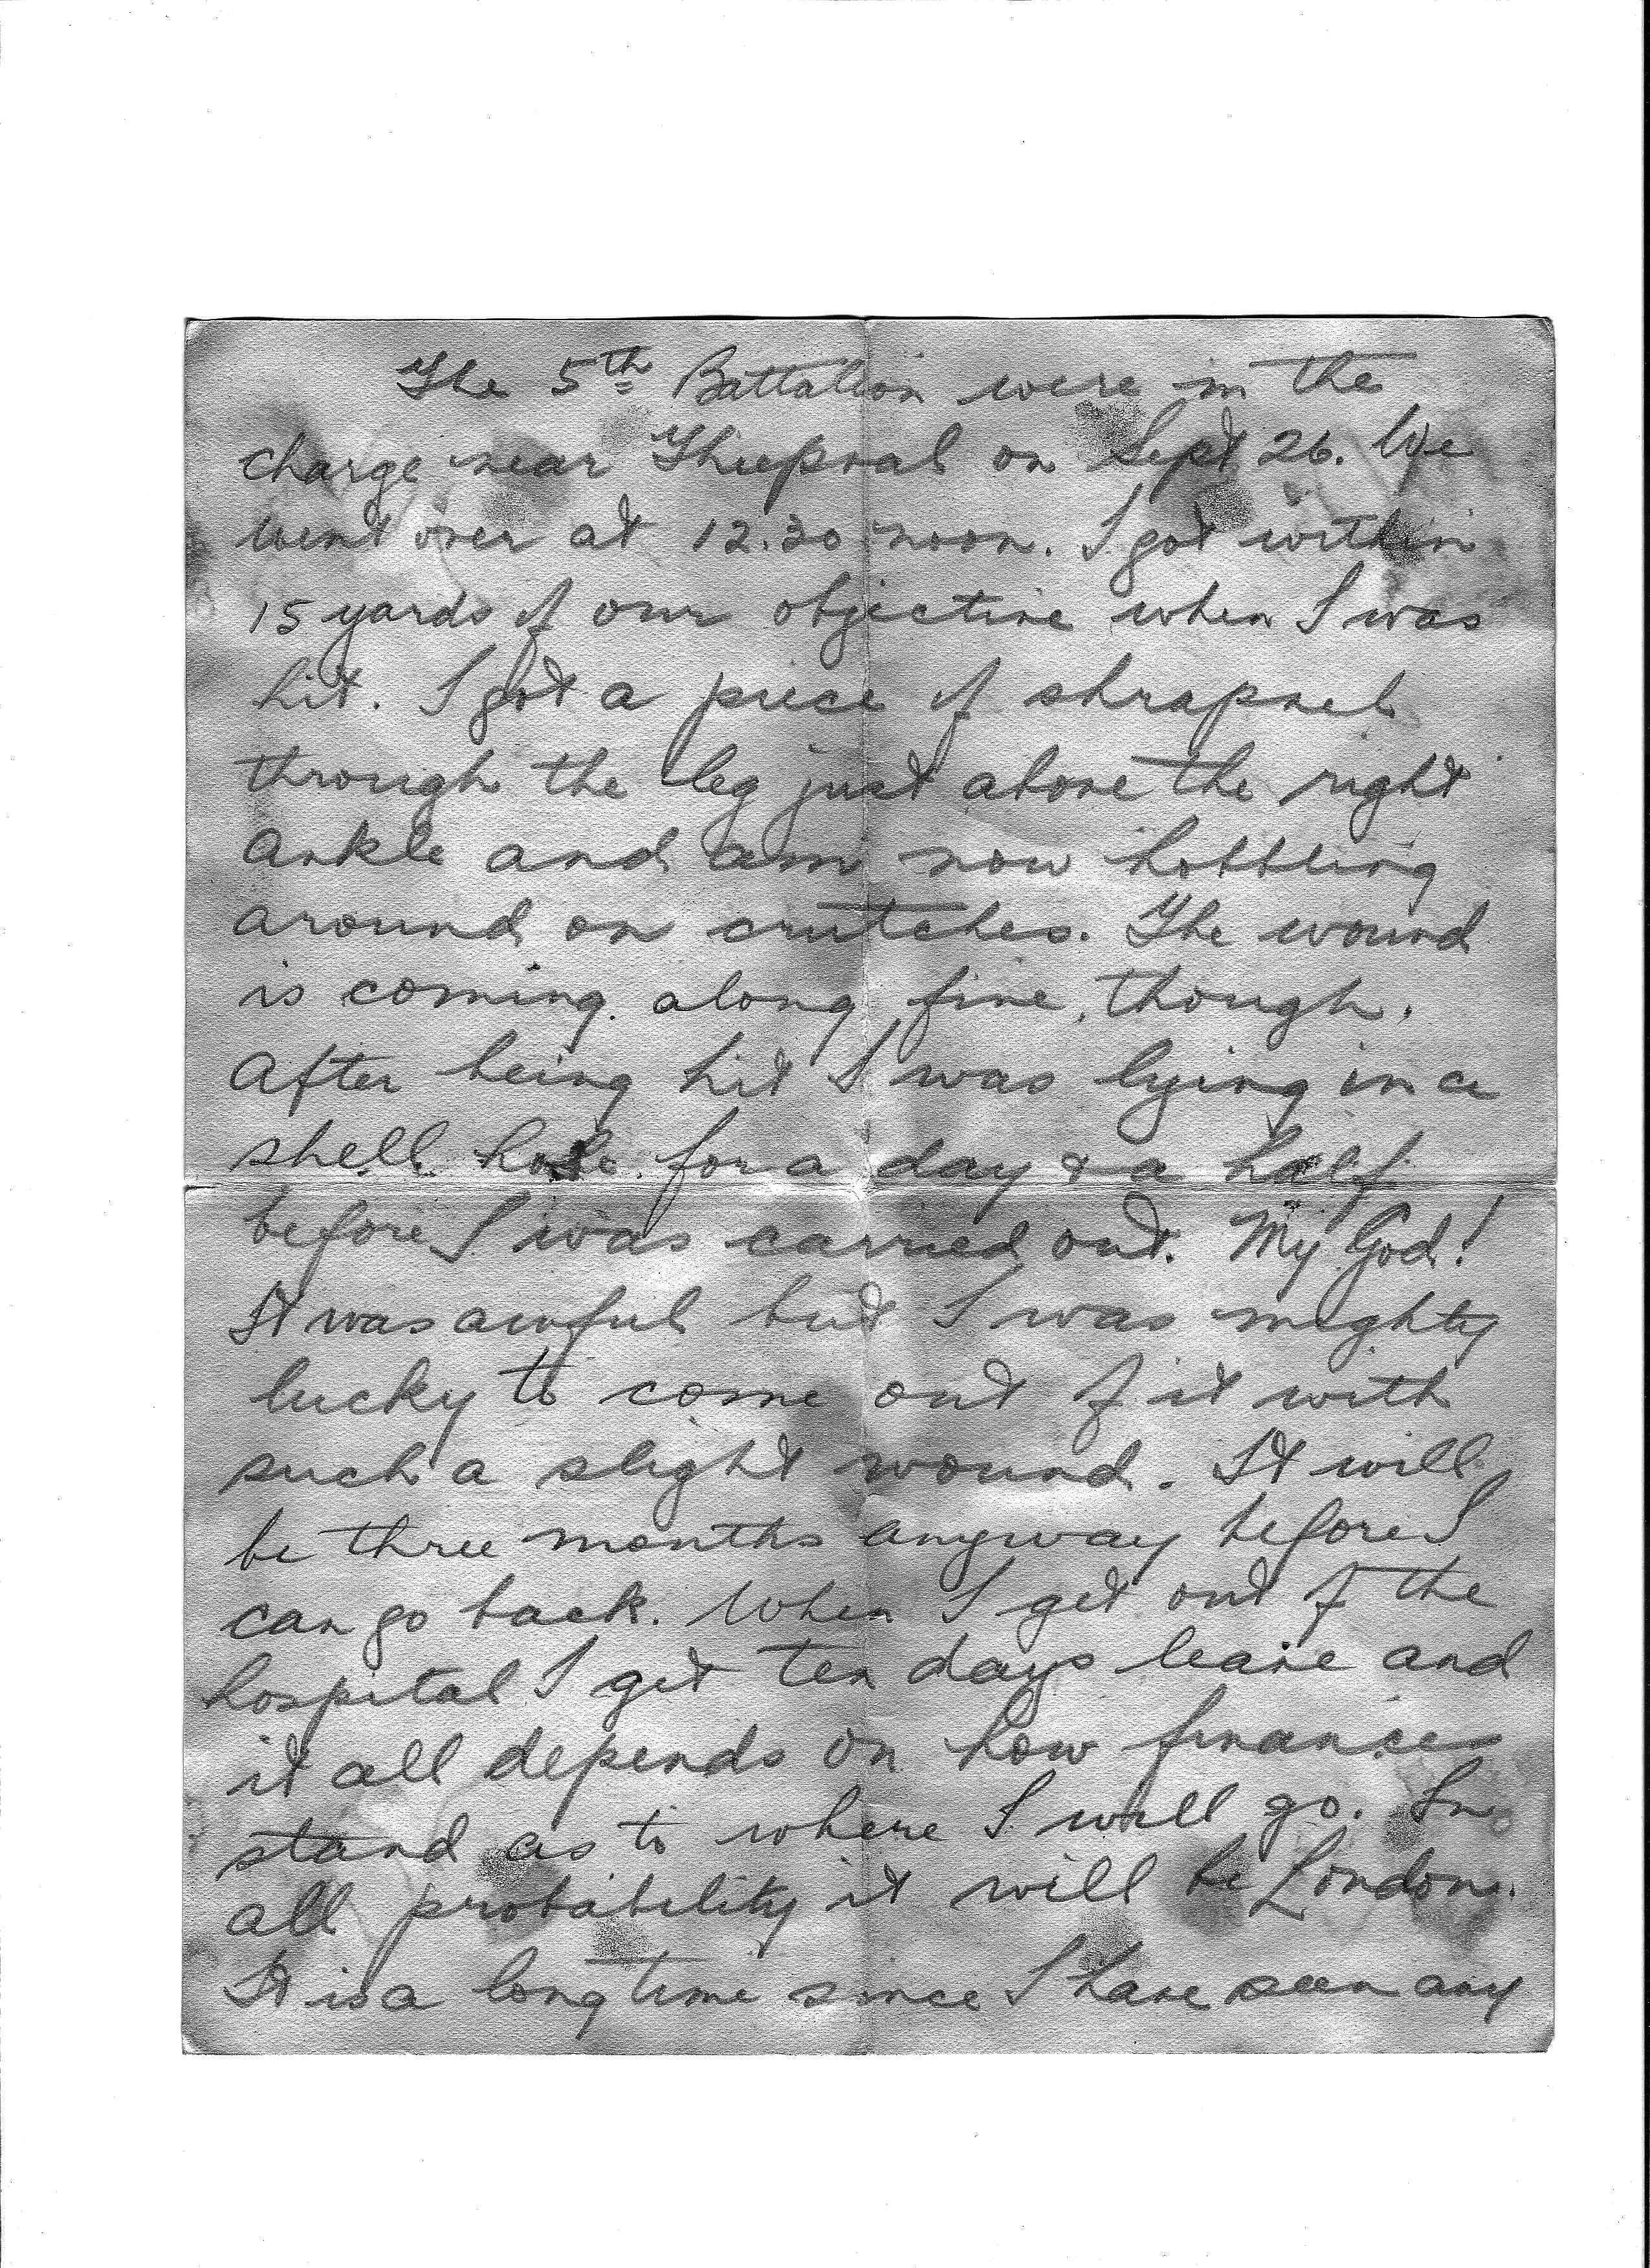 The 5th Battalion were in the
charge near Thiepval on Sept 26. We
went over at 12.30 noon. I got within
15 yards of our objective when I was
hit. I got a piece of shrapnel
through the leg just above the right
ankle and am now hobbling
around on crutches. The wound
is coming along fine, though.
After being hit I was lying in a
shell hole for a day & a half
before I was carried out. My God!
It was awful but I was mighty
lucky to come out of it with
such a slight wound. It will
be three months anyway before I
can go back. When I get out of the
hospital I get ten days leave and
it all depends on how finances
stand as to where I will go. In
all probability it will be London.
It is a long time since I have seen any